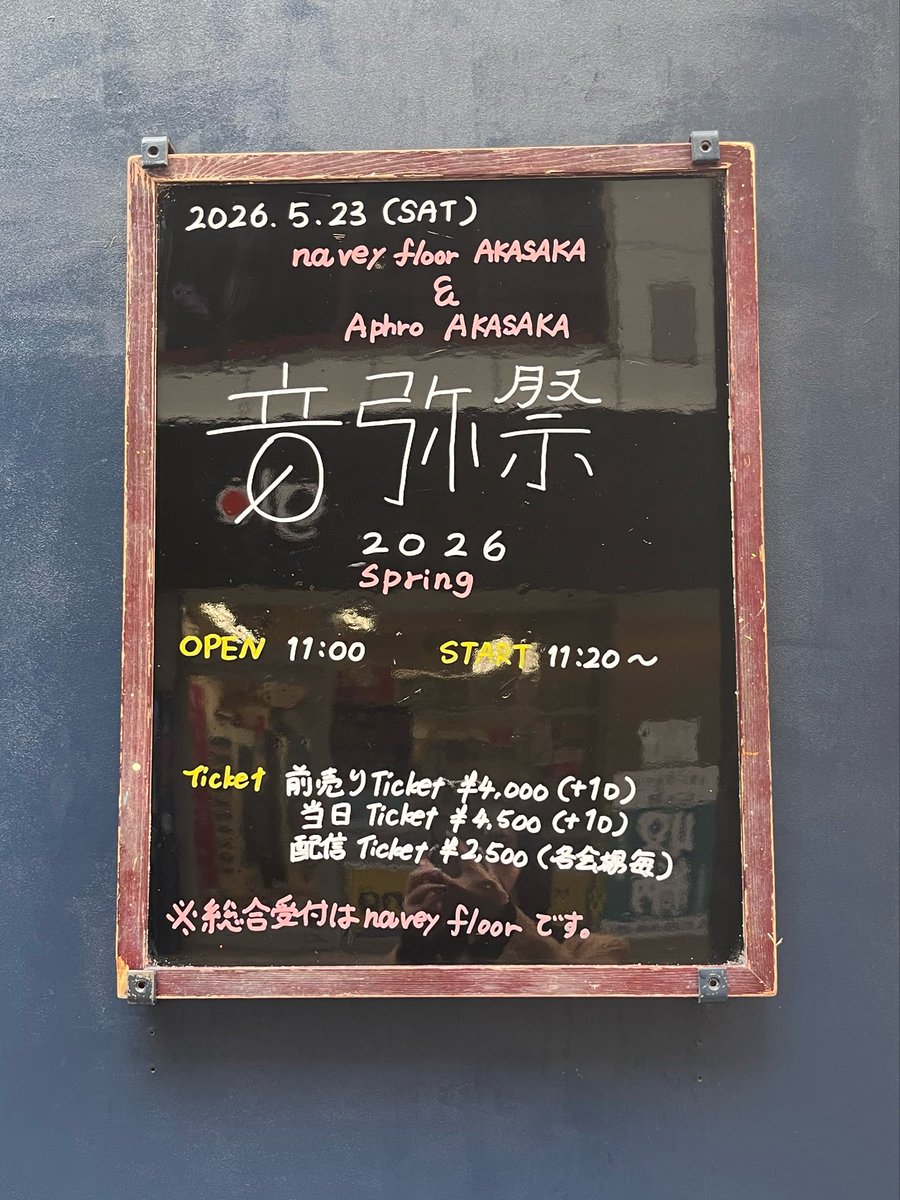 2026.5.23 (SAT)
navey floor AKASAKA
&
Aphro AKASAKA
音弥祭
2026
Spring
OPEN 11:00 START 11:20〜
Ticket 前売りTicket ¥4,000 (+1D)
当日 Ticket ¥4,500 (+1D)
配信 Ticket ¥2,500 (各会場毎)
※総合受付はnavey floor です。